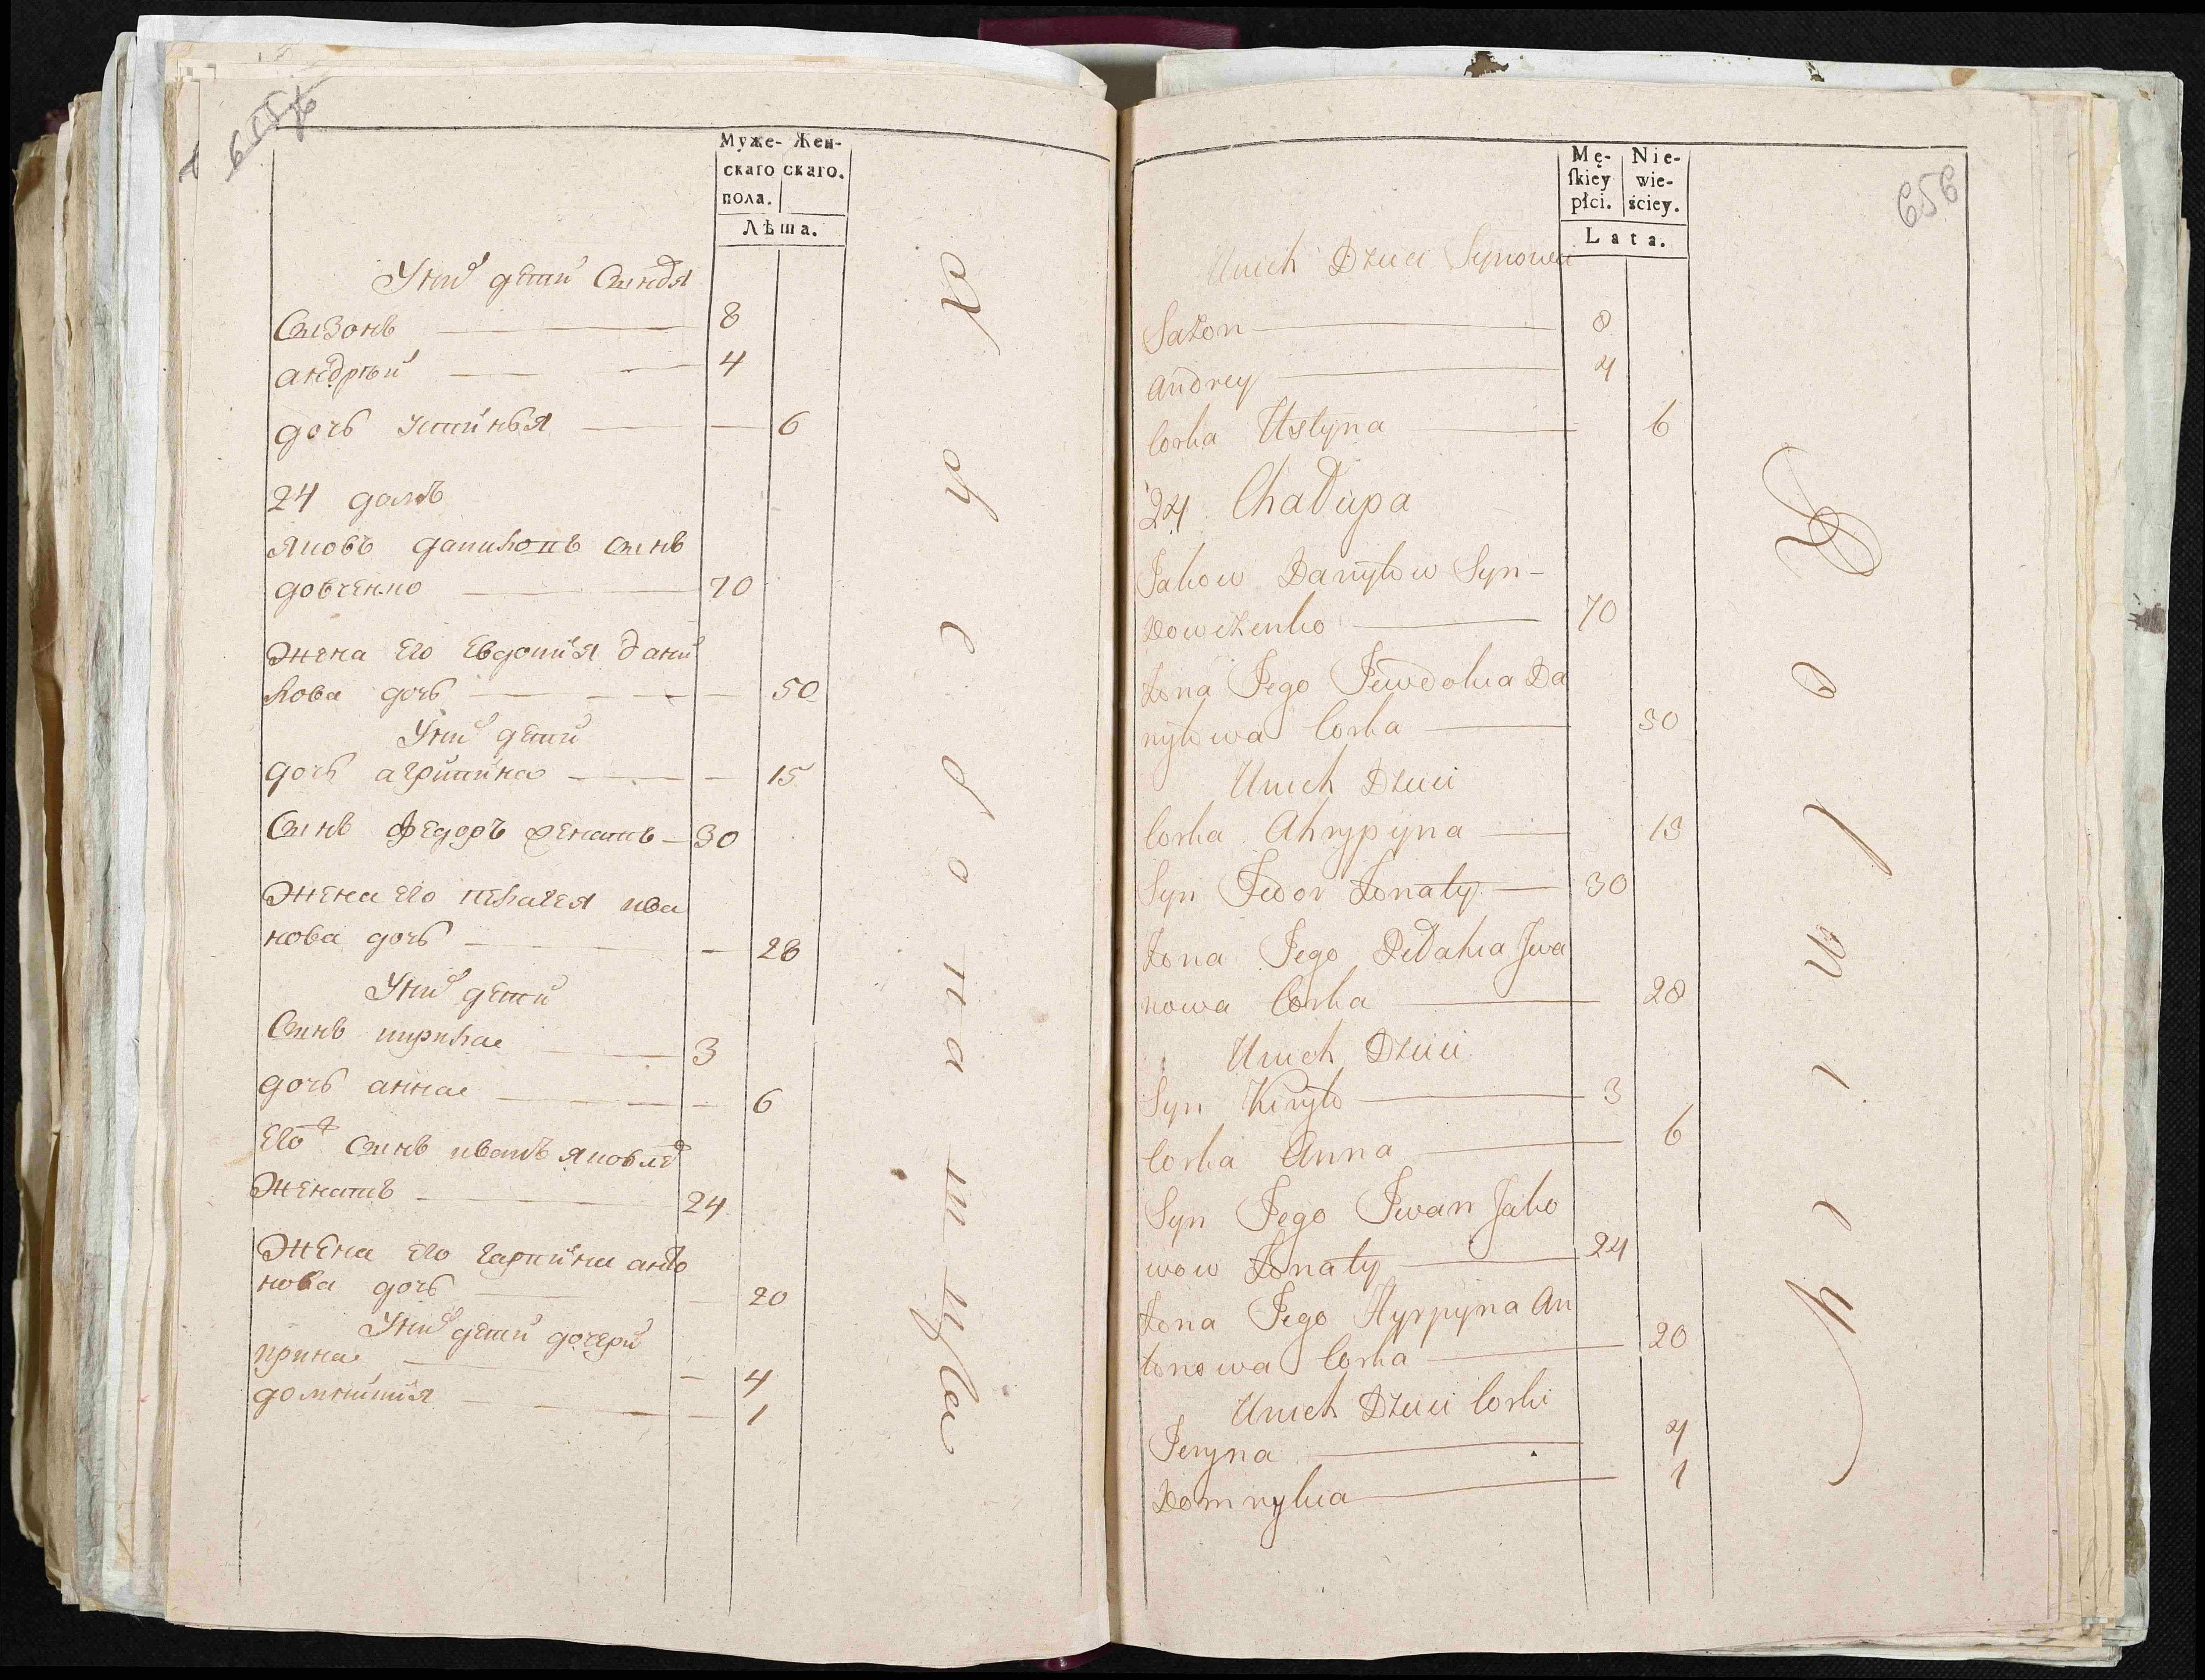 Муже- Жен-
скаго скаго.
пола.
Лѣта.
Уних дети Синовя
Сизонъ 8
андрѣй 4
дочь устинья 6
24 домъ
яковъ даниловъ синъ
довченко 70
жена Его Евдокия дани
лова дочь 50
Уних дети
дочь агрипина 15
Синъ федоръ женатъ 30
жена Его пелагея ива
нова дочь 28
Уних дети
Синъ кирила 3
дочь анна 6
Его синъ иванъ яковле
женатъ 24
жена Его гарпина анто
нова дочь 20
Уних дети дочери
ирина 4
домникия 1
656
Mę- Nie-
skiey wie-
płci. ściey.
Lata.
Unich Dzieci Synowei
Sazon 8
Andrey 4
Corka Ustyna 6
24 Chałupa
Jakow Danyłow Syn-
Dowczenko 70
Zona Jego Jewdokia Da
nyłowa Corka 50
Unich Dzieci
Corka Ahrypyna 15
Syn Fedor Zonaty 30
Zona Jego Pełahia Iwa
nowa Corka 28
Unich Dzieci
Syn Kiryło 3
Corka Anna 6
Syn Jego Iwan Jako
wow Zonaty 24
Zona Jego Hyrpyna An
tonowa Corka 20
Unich Dzieci Corki
Jeryna 4
Domnykia 1